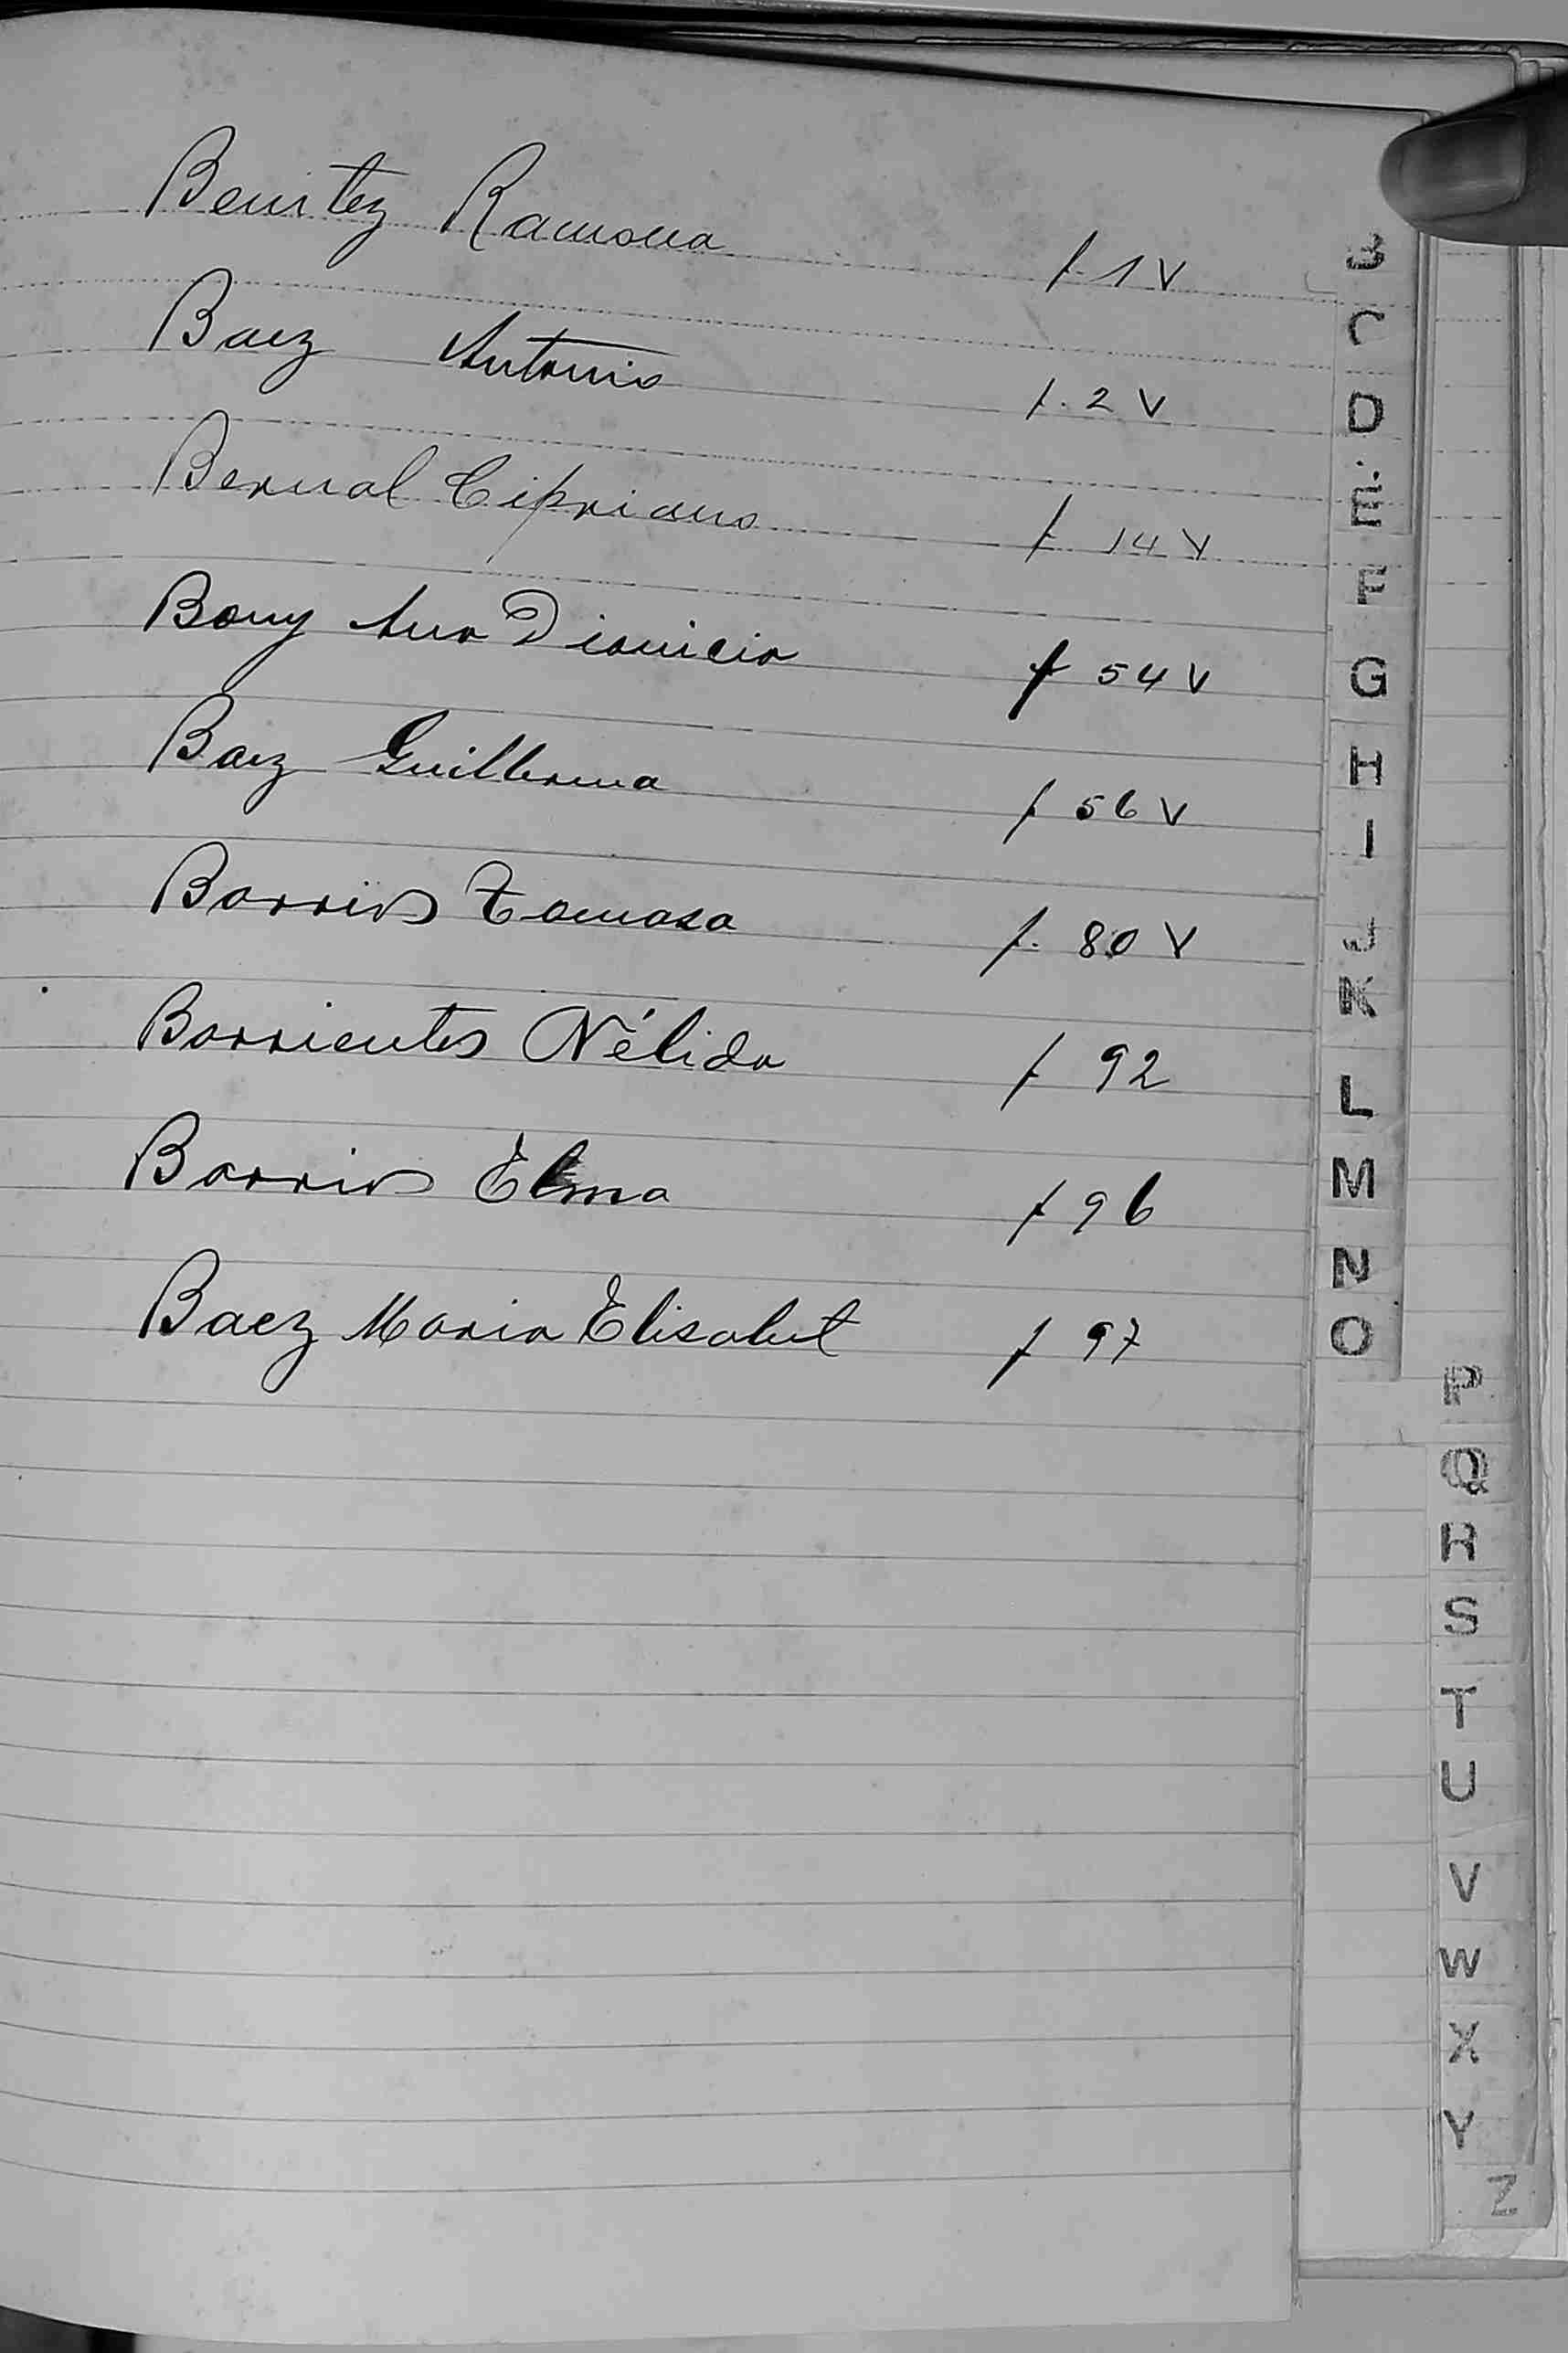 Benitez Ramona f. 1 V
Baez Antonio f. 2 V
Bernal Cipriano f. 14 V
Dionicio f 54 V
Baez Guillerma f. 56 V
Barrios Tomasa f. 80 V
Barrientes Nélida f 92
Barrios Elma f 96
Baez Maria Elisabet f 97
B
C
D
E
F
G
H
I
J
K
L
M
N
O
P
Q
R
S
T
U
V
W
X
Y
Z